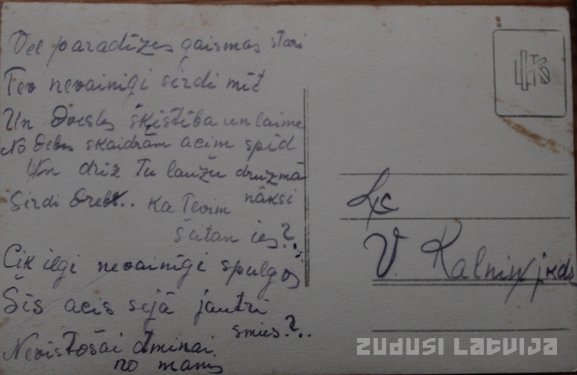 Vēl paradīzes gaismas stari
Tev nevainīgi sirdī mīt
Un dvēsles šķistība un laime
No debes skaidrām acīm spīd
Un drīz Tu laužu drūzmā
nāksi
Sirdi dreb.. Ka Tevim
šeitan ies?.
Cik ilgi nevainīgi spulgos
Šīs acis sejā jautri
smies?..
Neaistošai
no manis
V. Kalniņ
ZUDUSI LATVIJA